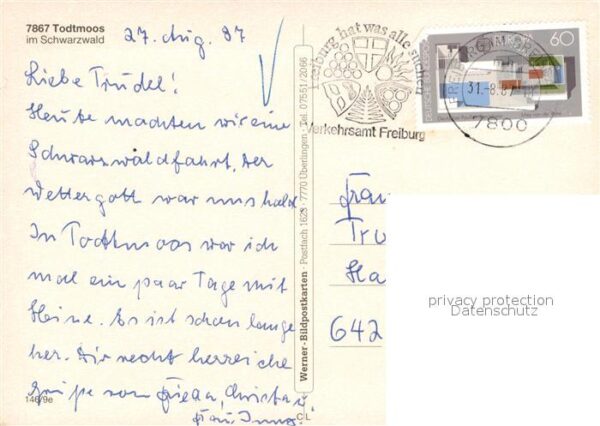 7867 Todtmoos
im Schwarzwald
27. Aug. 87
Liebe Trudel!
Heute machten wir eine
Schwarzwaldfahrt, der
Wettergott war uns hold
In Todtmoos war ich
mal ein paar Tage mit
Heine. Es ist schon lange
her. Dir recht herzliche
Grüße von
146/9e
Werner-Bildpostkarten · Postfach 1628 · 7770 Überlingen · Tel. 07551/2066
CL
Freiburg hat was alle suchen
Verkehrsamt Freiburg
31.-8.87
7800
60
Frau
Tru
Ha
642
privacy protection
Datenschutz